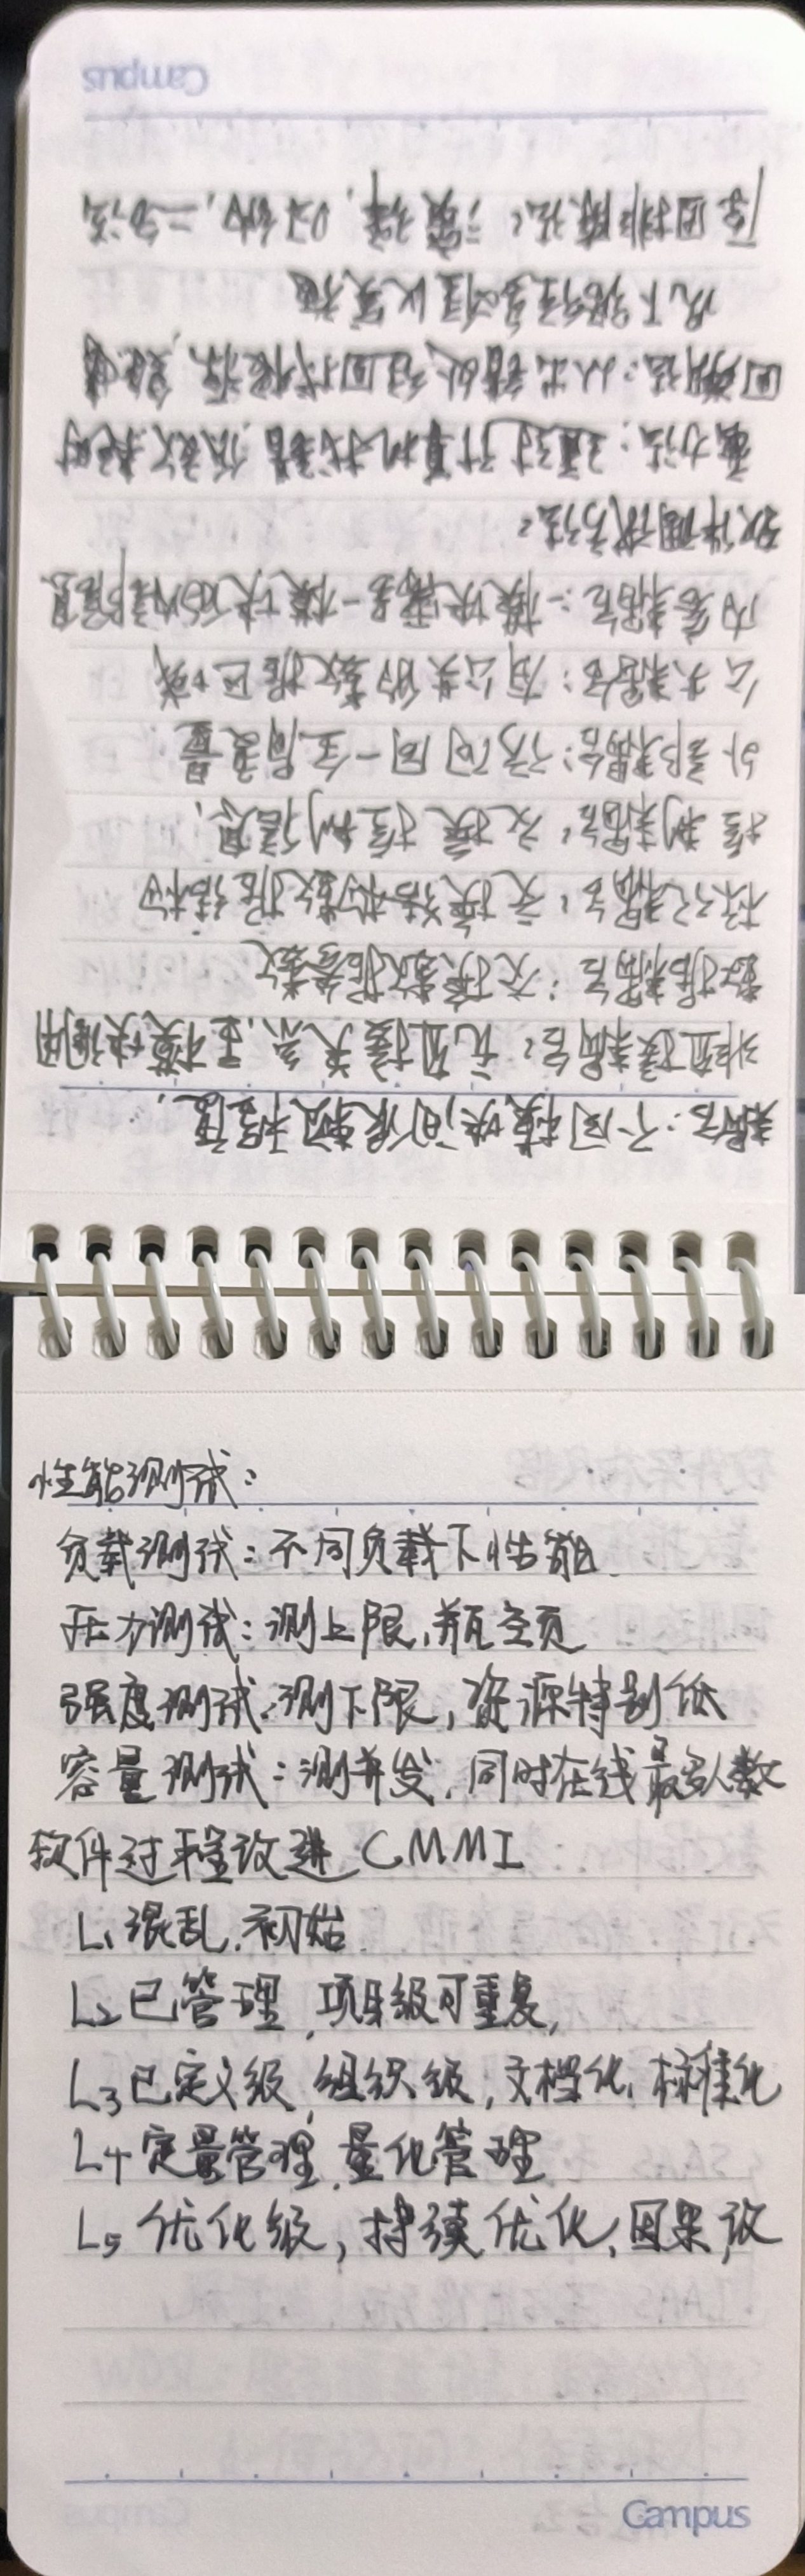 耦合:不同模块间依赖程度.
非直接耦合:无直接关系,主模块调用
数据耦合:交换数据参数
标记耦合:交换结构数据结构
控制耦合:交换控制信息.
外部耦合:访问同一全局变量
公共耦合:有公共的数据区域
内容耦合:一模块需另一模块的内部信息
软件调试方法:
蛮力法:通过计算机找错,低效耗时
回溯法:从出错处往回找根源,复杂
况下路径多难以实施
原因排除法:演绎,归纳,二分法
Campus
性能测试:
负载测试:不同负载下性能.
压力测试:测上限,瓶颈
强度测试:测下限,资源特别低
容量测试:测并发.同时在线最多人数
软件过程改进 CMMI
L1 混乱.初始.
L2 已管理,项目级可重复,
L3 已定义级,组织级,文档化,标准化
L4 定量管理.量化管理
L5 优化级,持续优化,因果,改
Campus